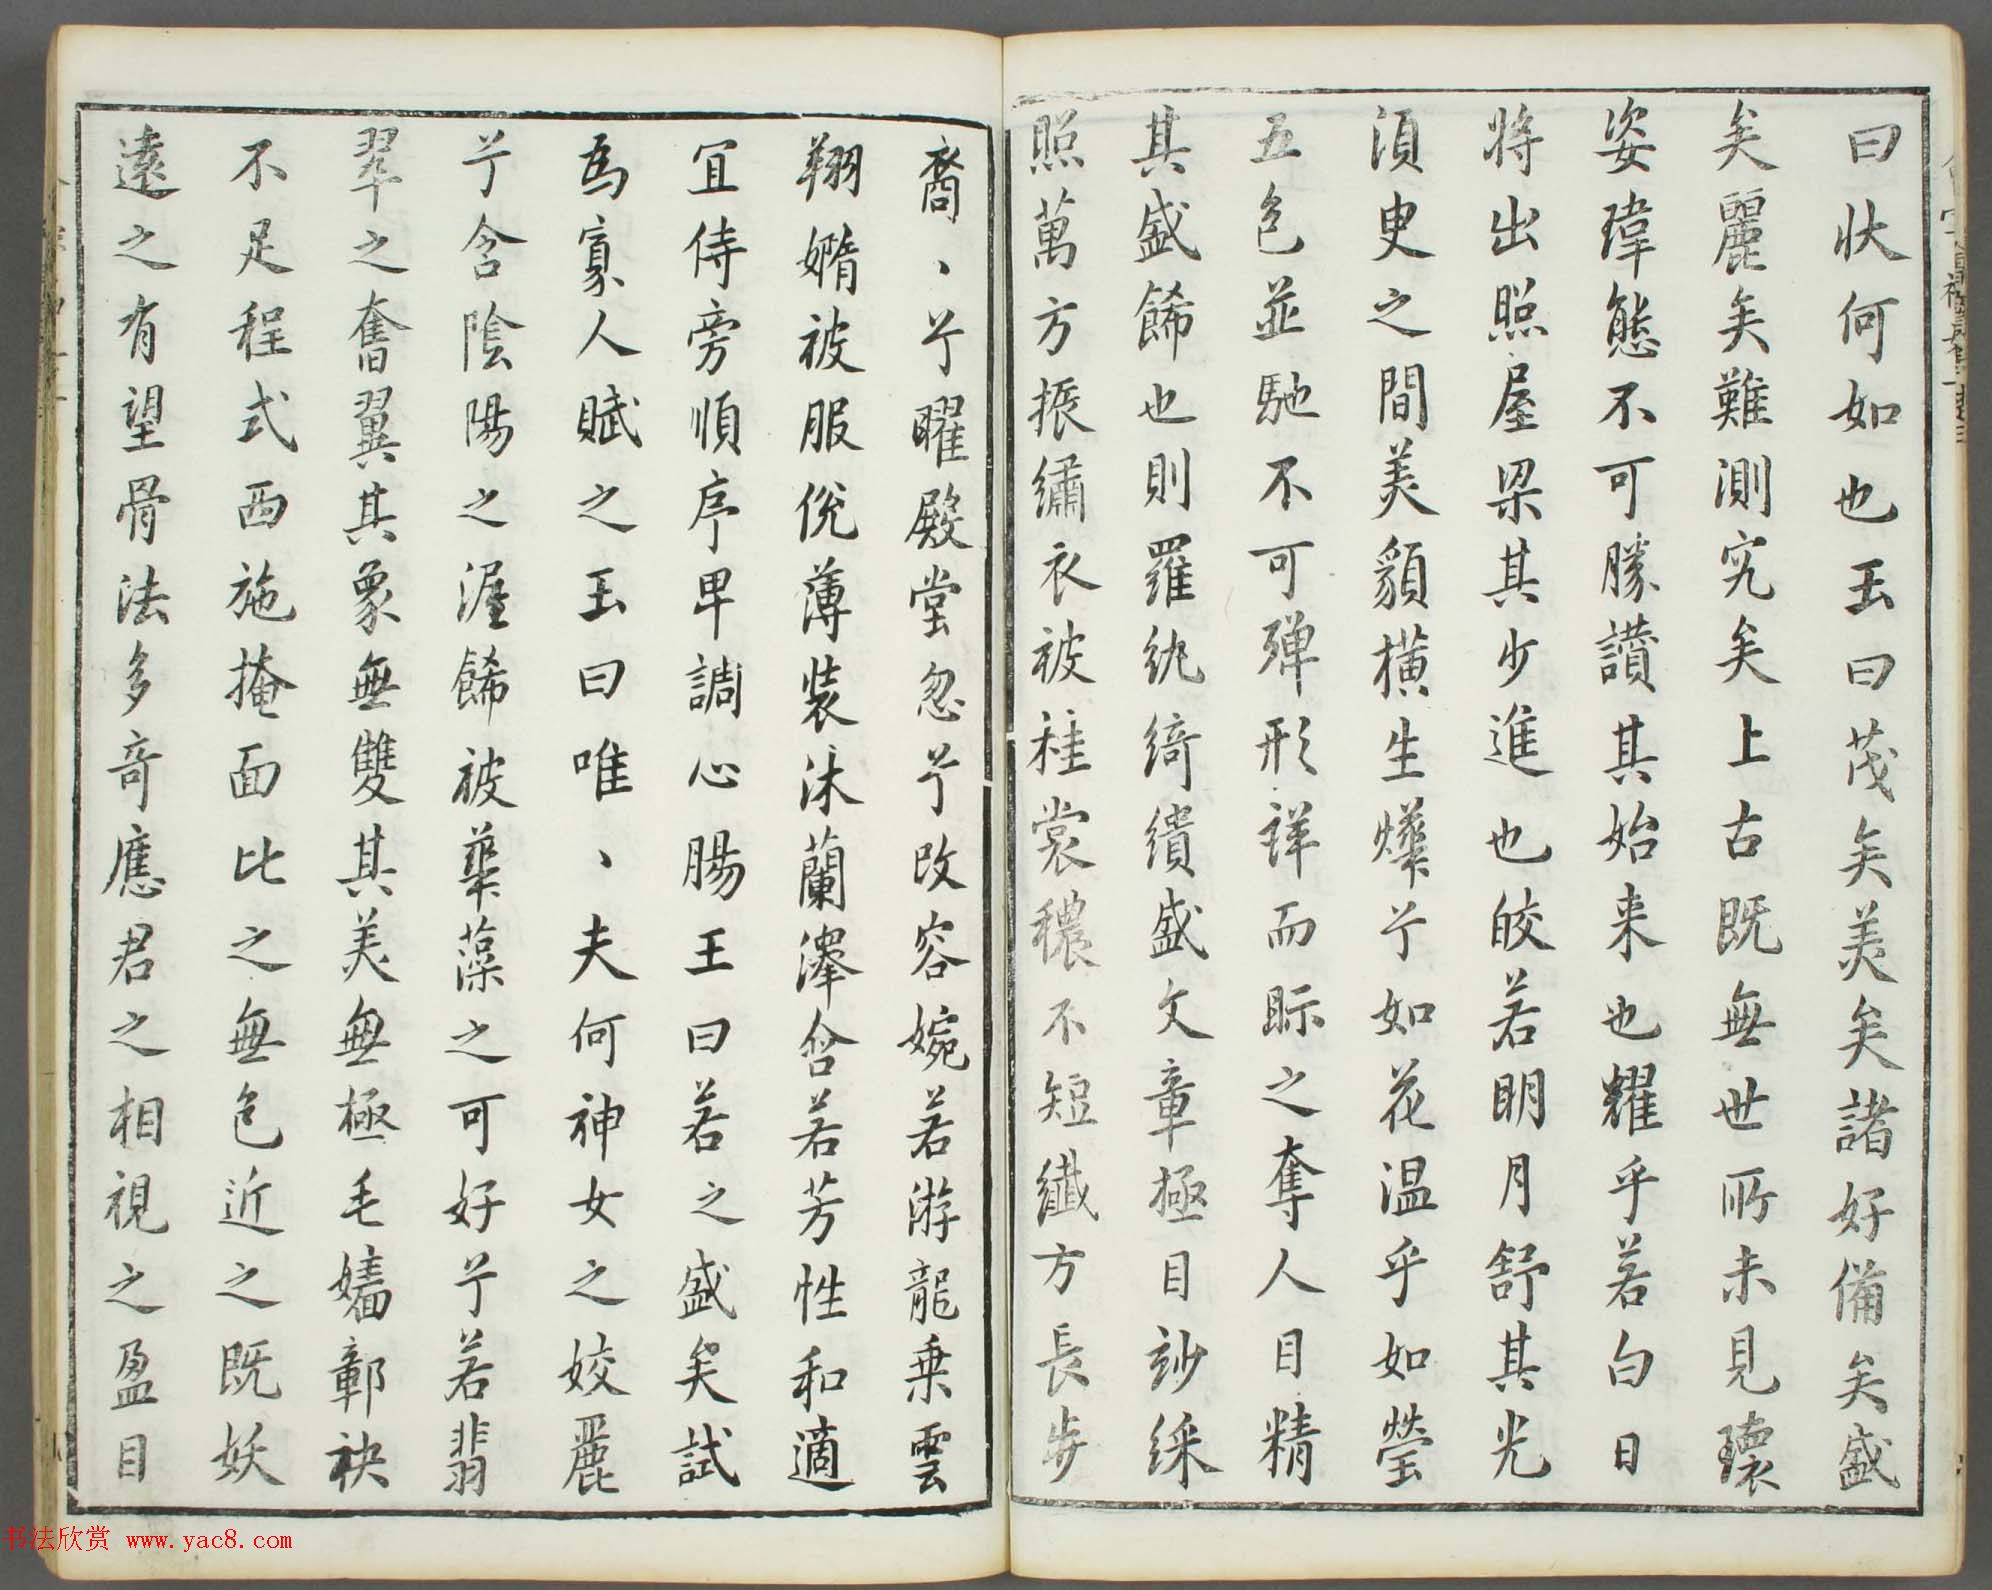 曰狀何如也玉曰茂矣美矣諸好備矣盛
矣麗矣難測究矣上古既無世所未見瓌
姿瑋態不可勝讚其始来也耀乎若白日
将出照屋梁其少進也皎若明月舒其光
湏臾之間美貌橫生燁兮如花温乎如瑩
五色並馳不可殫形詳而眎之奪人目精
其盛飾也則羅紈綺繢盛文章極目玅綵
照萬方振繡衣被袿裳穠不短纖方長步
裔丶兮曜殿堂忽兮改容婉若游龍乗雲
翔嫷被服侻薄装沐蘭澤含若芳性和適
宜侍旁順序卑調心腸王曰若之盛矣試
爲寡人賦之玉曰唯丶夫何神女之姣麗
兮含陰陽之渥飾被華藻之可好兮若翡
翠之奮翼其象無雙其美無極毛嬙鄣袂
不足程式西施掩面比之無色近之既妖
遠之有望骨法多奇應君之相視之盈目
书法欣赏 www.yac8.com